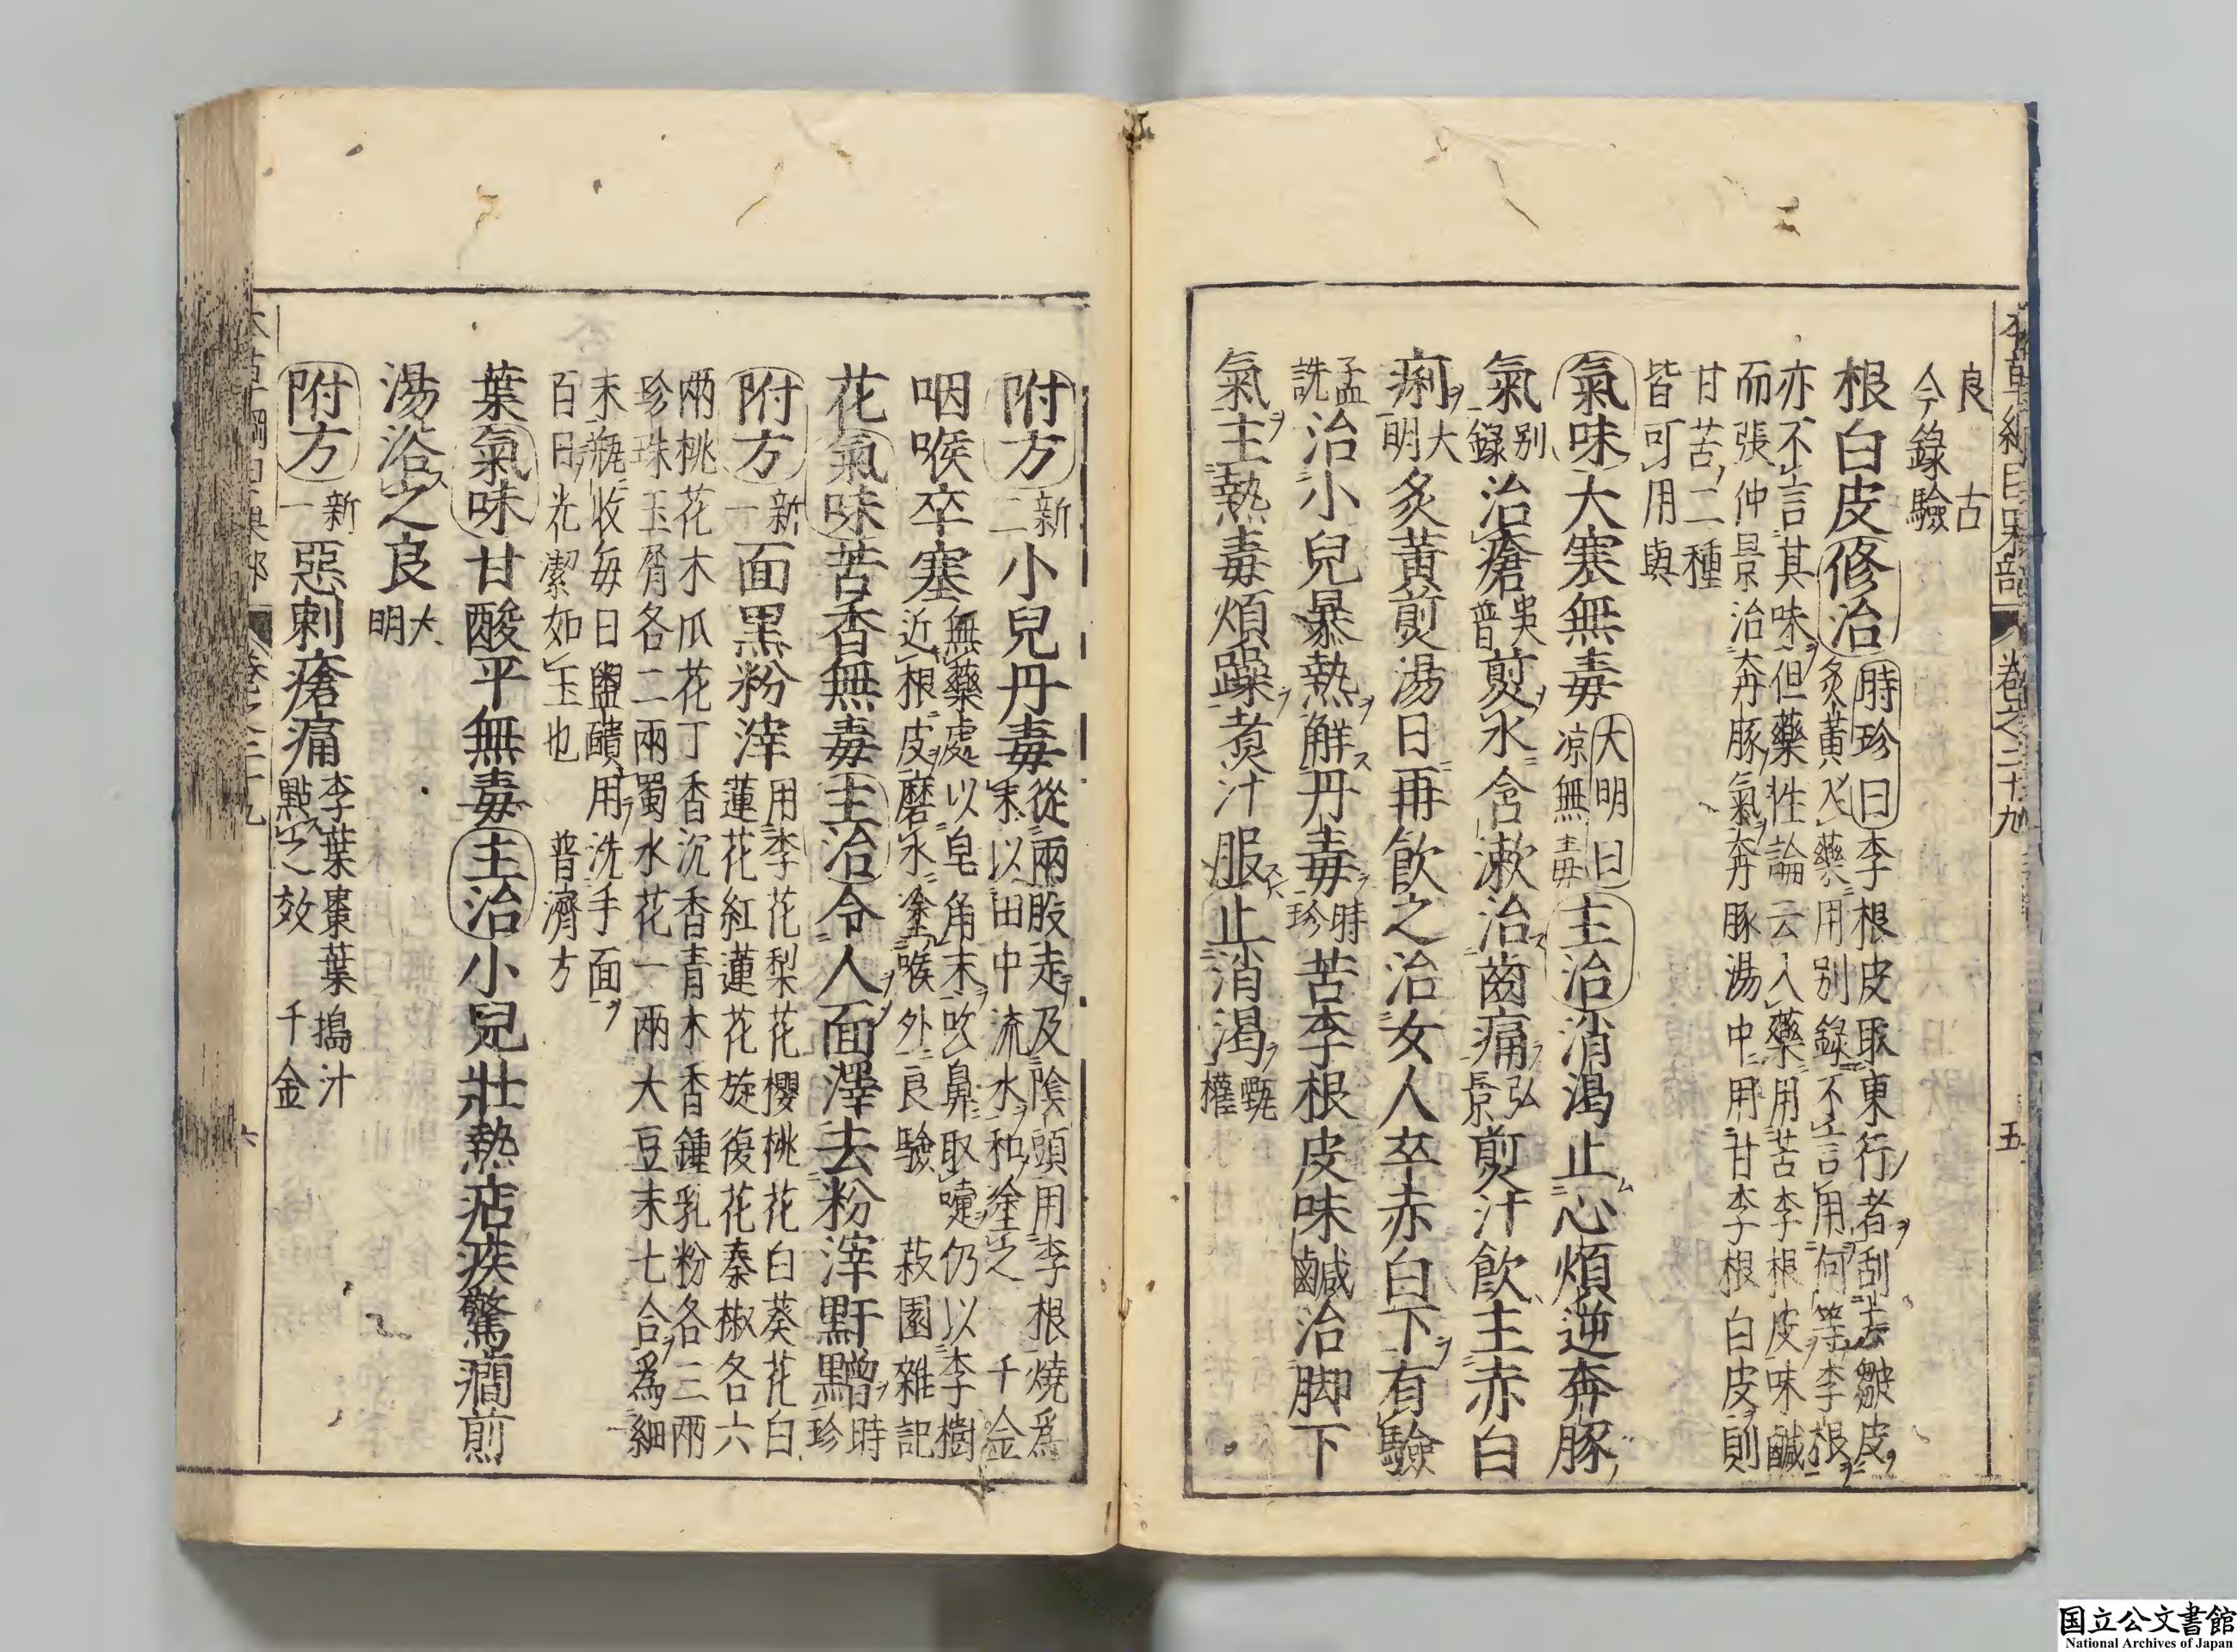 本草綱目果部 卷之二十九 五
良 古
今錄驗
根白皮修治時珍曰李根皮取東行者刮去皺皮
炙黃入藥用別錄不言用何等李根
亦不言其味但藥性論云入藥用苦李根皮味鹹
而張仲景治奔豚氣奔豚湯中用甘李根白皮則
甘苦二種
皆可用與
氣味大寒無毒大明曰涼無毒主治消渴止心煩逆奔豚
氣別錄治瘡吳普煎水含漱治齒痛弘景煎汁飲主赤白
痢大明炙黃煎湯日再飲之治女人卒赤白下有驗
孟詵治小兒暴熱解丹毒時珍苦李根皮味鹹治脚下
氣主熱毒煩躁煑汁服止消渴甄權
附方新二小兒丹毒從兩股走及陰頭用李根燒爲
末以田中流水和塗之 千金
咽喉卒塞無藥處以皂角末吹鼻取嚏仍以李樹
近根皮磨水塗喉外良驗 菽園雜記
花氣味苦香無毒主治令人面澤去粉滓䵟黵時珍
附方新一面黑粉滓用李花梨花櫻桃花白葵花白
蓮花紅蓮花旋復花秦椒各六
兩桃花木瓜花丁香沉香青木香鍾乳粉各三兩
珍珠玉屑各二兩蜀水花一兩大豆末七合爲細
末瓶收每日盥靧用洗手面
百日光潔如玉也 普濟方
葉氣味甘酸平無毒主治小兒壯熱痁疾驚癎煎
湯浴之良大明
附方新一惡刺瘡痛李葉棗葉搗汁
點之效 千金
卷之二十九 六
国立公文書館
National Archives of Japan